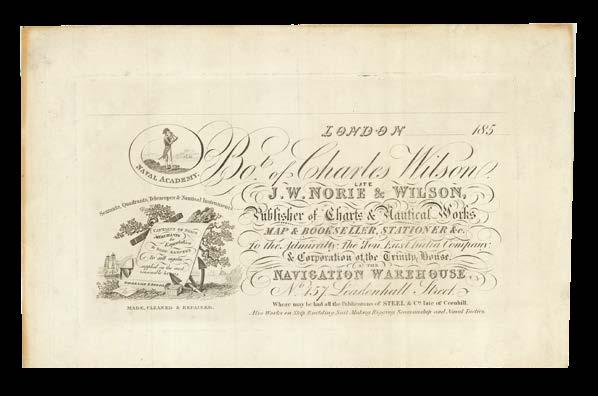 LONDON 185
NAVAL ACADEMY.
Bot. of Charles Wilson,
LATE
J. W. NORIE & WILSON,
Publisher of Charts & Nautical Works,
MAP & BOOKSELLER, STATIONER &c.
To the Admiralty, The Hon. East India Company,
& Corporation of the Trinity House.
AT THE
NAVIGATION WAREHOUSE,
No. 157 Leadenhall Street
Where may be had all the Publications of STEEL & Co. late of Cornhill.
Also Works on Ship Building, Sail Making, Rigging, Seamanship and Naval Tactics.
Sextants, Quadrants, Telescopes & Nautical Instruments
CAPTAINS OF SHIPS
MERCHANTS
supplied on the most
MADE, CLEANED & REPAIRED.